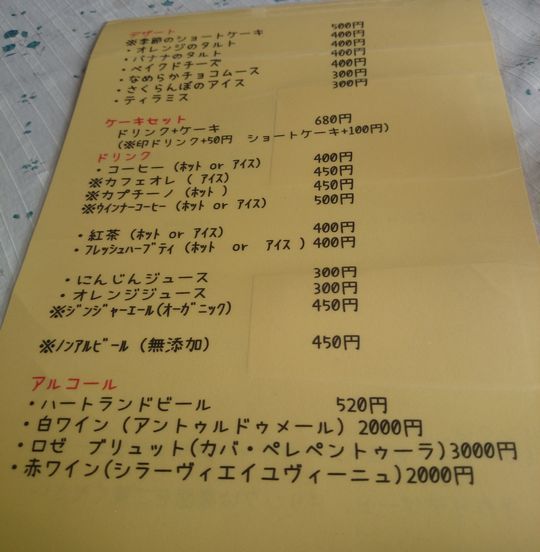 デザート
※季節のショートケーキ 500円
・オレンジのタルト 400円
・バナナのタルト 400円
・ベイクドチーズ 400円
・なめらかチョコムース 400円
・さくらんぼのアイス 300円
・ティラミス 300円
ケーキセット
ドリンク+ケーキ 680円
(※印ドリンク+50円 ショートケーキ+100円)
ドリンク
・コーヒー (ホット or アイス) 400円
※カフェオレ ( アイス) 450円
※カプチーノ (ホット ) 450円
※ウインナーコーヒー (ホット or アイス) 500円
・紅茶 (ホット or アイス) 400円
・フレッシュハーブティ (ホット or アイス ) 400円
・にんじんジュース 300円
・オレンジジュース 300円
※ジンジャーエール(オーガニック) 450円
※ノンアルビール (無添加) 450円
アルコール
・ハートランドビール 520円
・白ワイン (アントゥルドゥメール) 2000円
・ロゼ ブリュット(カバ・ペレペントゥーラ)3000円
・赤ワイン(シラーヴィエイユヴィーニュ)2000円